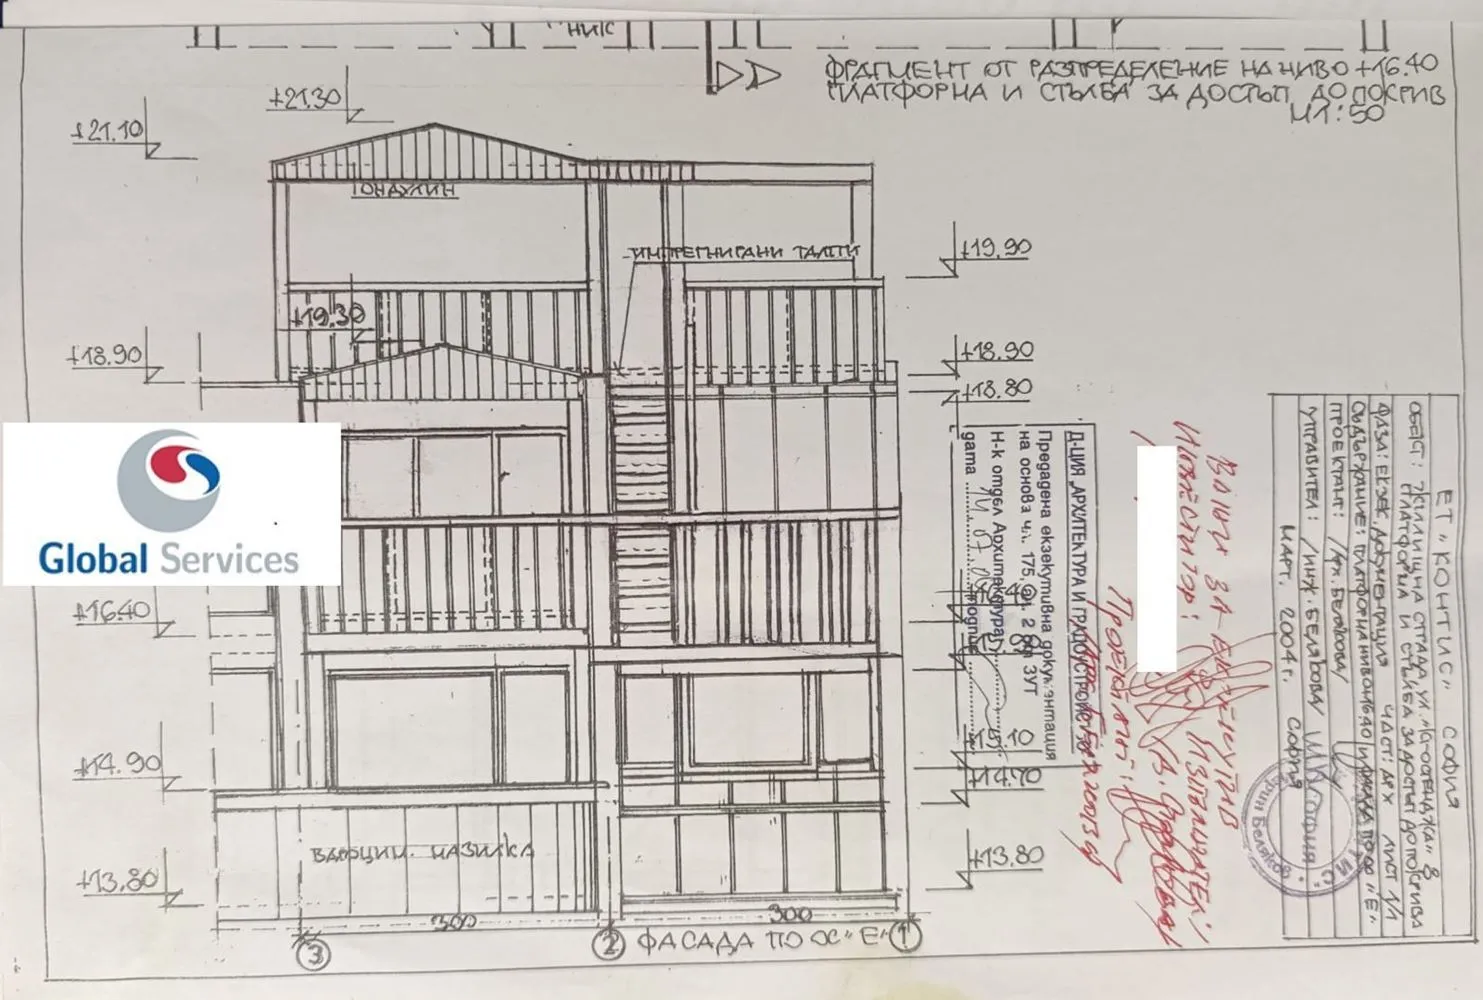 НИС
ФРАГМЕНТ ОТ РАЗПРЕДЕЛЕНИЕ НА НИВО +16.40
ПЛАТФОРМА И СТЪЛБА ЗА ДОСТЪП ДО ПОКРИВ
М 1:50
+21.30
+21.10
ОНДУЛИН
ИМПРЕГНИРАНИ ТАЛПИ
+19.90
+19.30
+18.90
+18.90
+18.80
Global Services
+16.40
+16.40
+14.90
+15.10
+14.70
ВАРОЦИМ. МАЗИЛКА
+13.80
+13.80
300
300
3
2
ФАСАДА ПО ОС "Е"
1
Д-ЦИЯ "АРХИТЕКТУРА И ГРАДОУСТРОЙСТВО"
Предадена екзекутивна документация
на основа чл. 175, ал. 2 от ЗУТ
Н-к отдел Архитектура
дата
подпис
Възложител
Инвеститор:
Проектант:
ЕТ "КОНТИС" СОФИЯ
ОБЕКТ: ЖИЛИЩНА СГРАДА, УЛ.
ПЛАТФОРМА И СТЪЛБА ЗА ДОСТЪП ДО ПОКРИВА
ФАЗА: ЕКЗЕК. ДОКУМЕНТАЦИЯ ЧАСТ: АРХ ЛИСТ 1/1
СЪДЪРЖАНИЕ: ПЛАТФОРМА НИВО +16.40 И ФАСАДА ПО ОС "Е"
ПРОЕКТАНТ: /АРХ. БЕЛЯКОВА/
УПРАВИТЕЛ: /ИНЖ. БЕЛЯКОВА/
МАРТ. 2004г. СОФИЯ